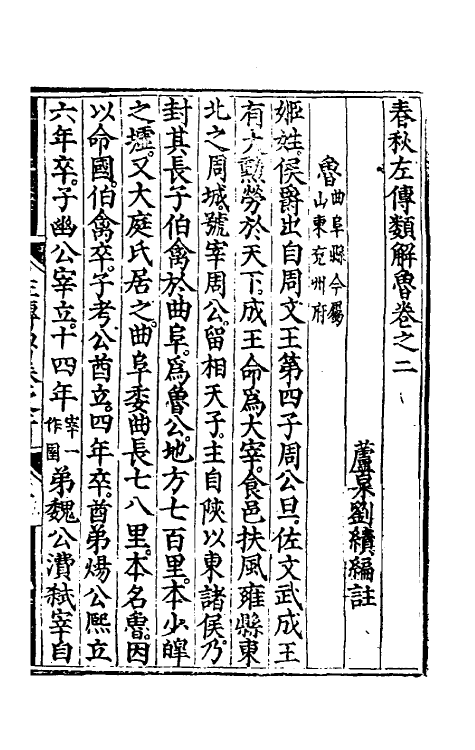 春秋左傳類解魯卷之二
蘆泉劉績編註
魯曲阜縣今屬山東兗州府
姬姓侯爵出自周文王第四子周公旦佐文武成王
有大勲勞於天下成王命爲大宰食邑扶風雍縣東
北之周城號宰周公留相天子主自陜以東諸侯乃
封其長子伯禽於曲阜爲魯公地方七百里本少皥
之墟又大庭氏居之曲阜委曲長七八里本名魯因
以命國伯禽卒子考公酋立四年卒酋弟煬公熙立
六年卒子幽公宰立十四年宰一作圉弟魏公㵒弒宰自